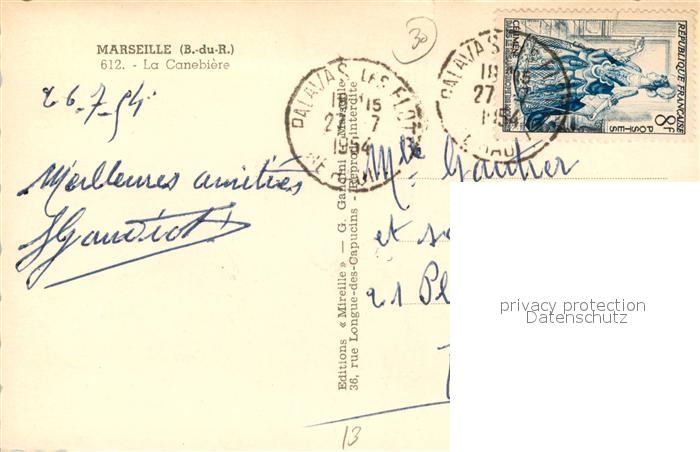 MARSEILLE (B.-du-R.)
612. - La Canebière
26-7-54
Meilleures amitiés
30
PALAVAS LES FLOTS
18 15
27 7
1954
HÉRAULT
PALAVAS
18 15
27 7
1954
HÉRAULT
REPUBLIQUE FRANÇAISE
POSTES
8F
CELIMENE
Editions « Mireille » — G. Gandini - Marseille
36, rue Longue-des-Capucins - Reprod. interdite
Mlle Gautier
et
21 Pl
privacy protection
Datenschutz
13